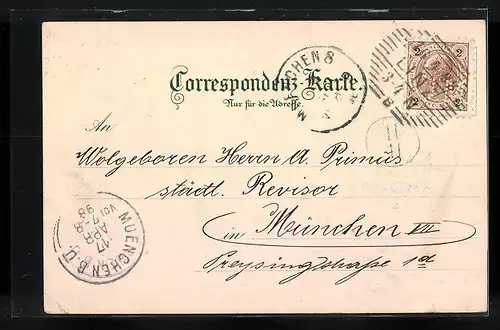 Correspondenz-Karte.
Nur für die Adresse.
An
Wolgeboren Herrn A. Primus
städtl. Revisor
in München VII
Preysingstraße 1d
MUENCHEN B.Ü.
17
APR
VOR 7-8
98
MUENCHEN 8
2
2
2
2